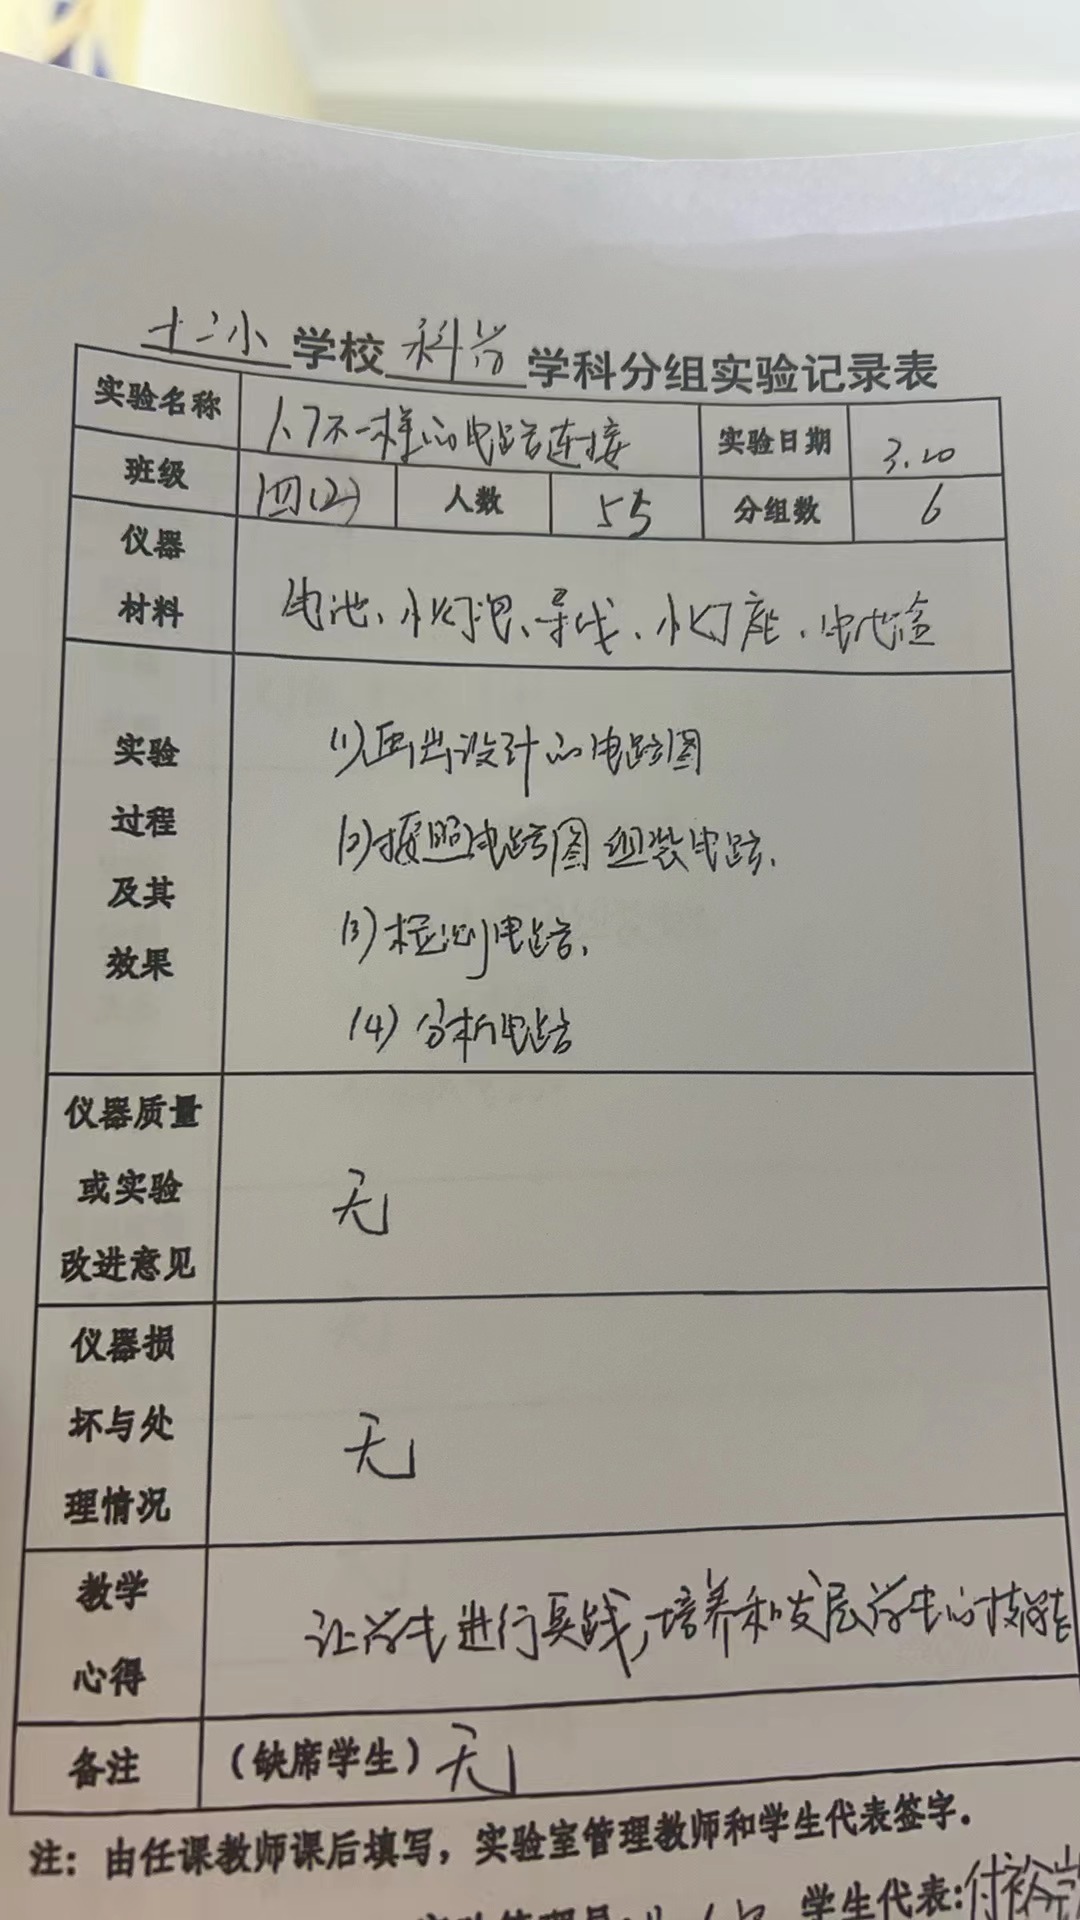 十二小学校科学学科分组实验记录表
实验名称 1.7不一样的电路连接 实验日期 3.20
班级 四(2) 人数 55 分组数 6
仪器材料 电池、小灯泡、导线、小灯座、电池盒
实验过程及其效果
(1)画出设计的电路图
(2)按照电路图组装电路.
(3)检测电路.
(4)分析电路
仪器质量或实验改进意见 无
仪器损坏与处理情况 无
教学心得 让学生进行实战,培养和发展学生的技能
备注 (缺席学生)无
注:由任课教师课后填写,实验室管理教师和学生代表签字。
学生代表:付裕